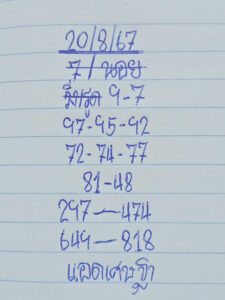 20/8/67
7 / นอย
วิ่งรูด 9-7
97-95-92
72-74-77
81-48
297—474
649—818
แอดเศษฐิา